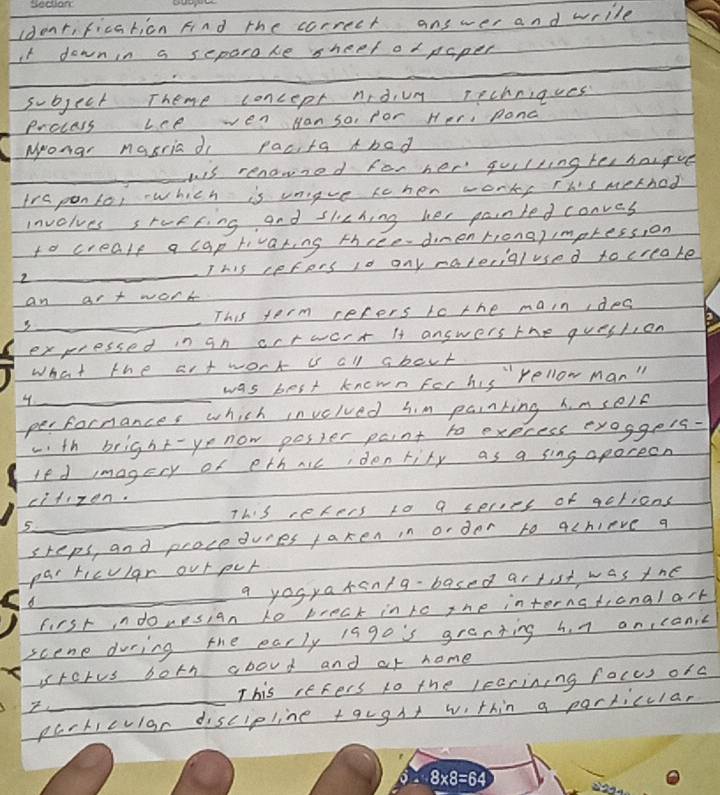 Section: Subject:
identification Find the correct answer and write
it down in a separate sheet of paper
subject Theme concept midium Techniques
Process Lee wen Han sai Por Heri Dono
Mponar masriadi Pacita Abad
was renowned for her quilting technique
trapontoi which is unique to her works This method
involves stuffing and stiching her painted canvas
to create a captivating three-dimentional impression
2 This refers to any material used to create
an art work
3. This term refers to the main idea
expressed in an art work It answers the question
what the art work is all about
4. was best known for his "Yellow man"
performances which involved him painting himself
with bright-yellow poster paint to express exaggera-
ted imagery of ethnic identity as a singaporean
citizen.
5. This refers to a series of actions
steps, and procedures taken in order to achieve a
particular output
6 a yogyakanta-based artist, was the
first indonesian to break into the international art
scene during the early 1990's granting him an iconic
status both aboud and at home
7. This refers to the learining focus of a
particular discipline taught within a particular
8x8=64